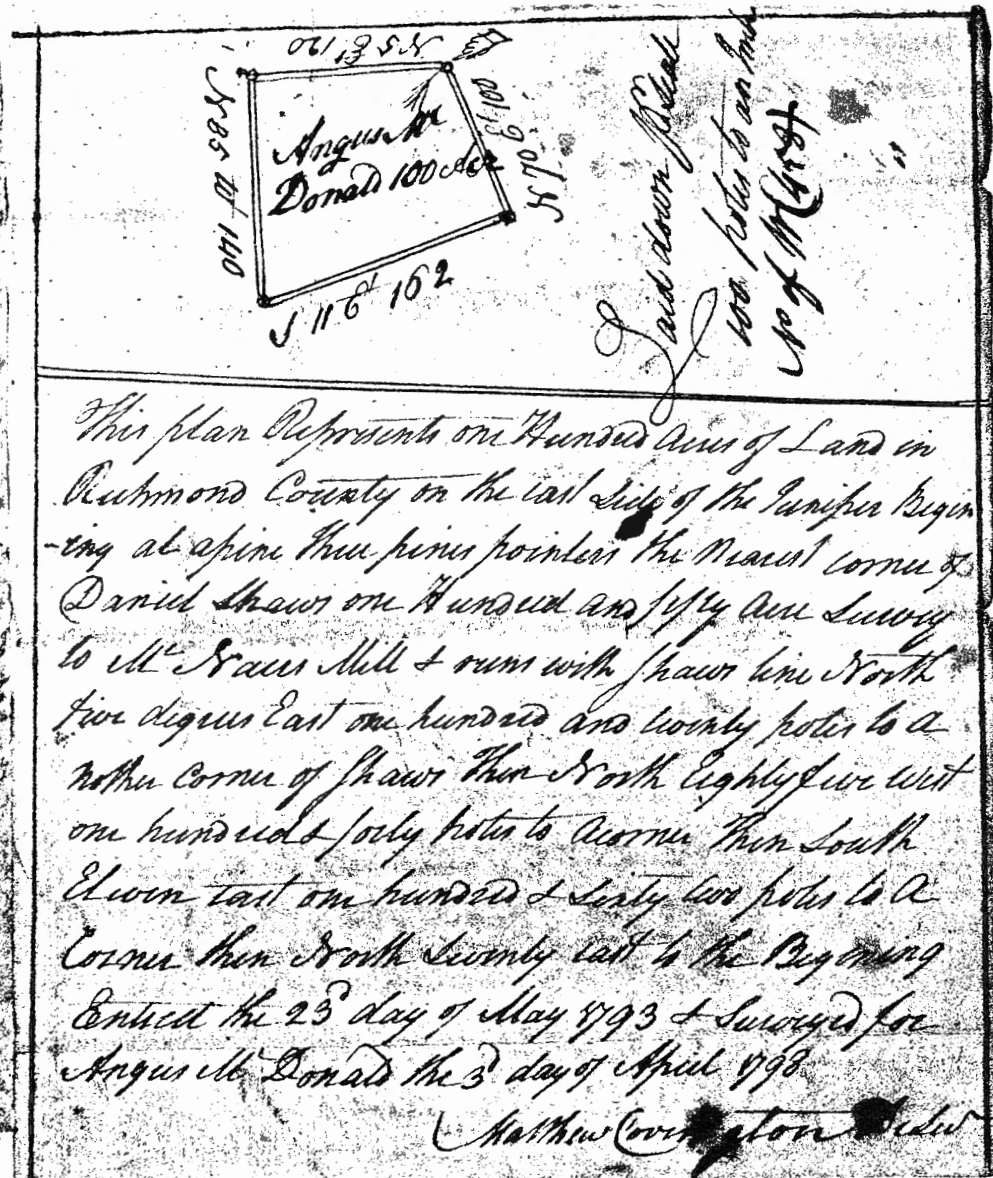 N 5 E 120
N 85 W 140
Angus Mc
Donald 100 Acr
S 11 E 162
N 70 E 100
Laid down Scale
100 poles to an Inch
No of
This plan Represents one Hundred Acres of Land in
Richmond County on the east Side of the Juniper Begin
-ing at a pine three pines pointers the Nearest corner of
Daniel Shaws one Hundred and fifty Acre Survey
to Mc Mill & runs with Shaws line North
five degrees East one hundred and twenty poles to a
nother Corner of Shaws Then North Eighty five West
one hundred & forty poles to a corner Then South
Eleven East one hundred & Sixty two poles to A
Corner then North Seventy east to the Begening
Entred the 23d day of May 1793 & Surveyed for
Angus Mc Donald the 3d day of April 1798
Matthew Covington